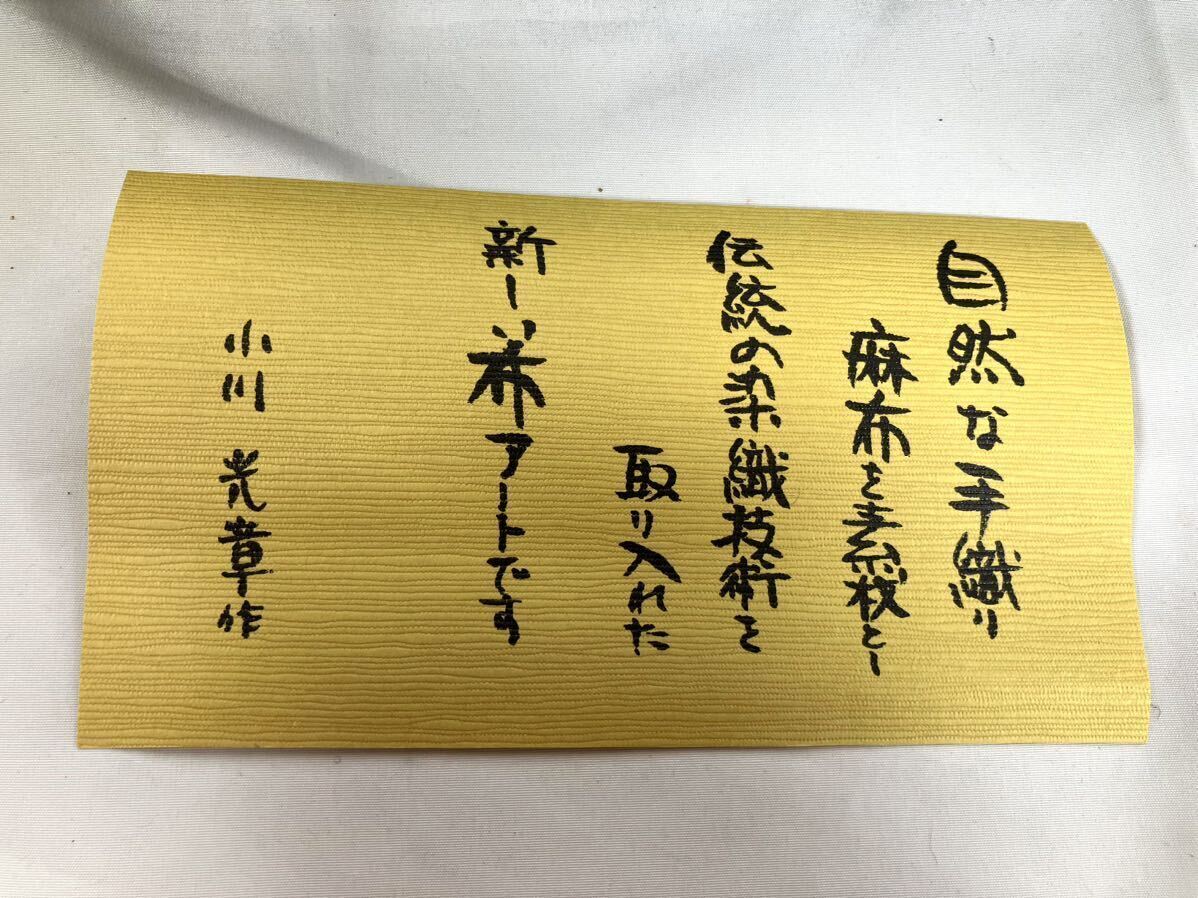 自然な手織り
麻布を素材とし
伝統の染織技術を
取り入れた
新しい布アートです
小川 光章作